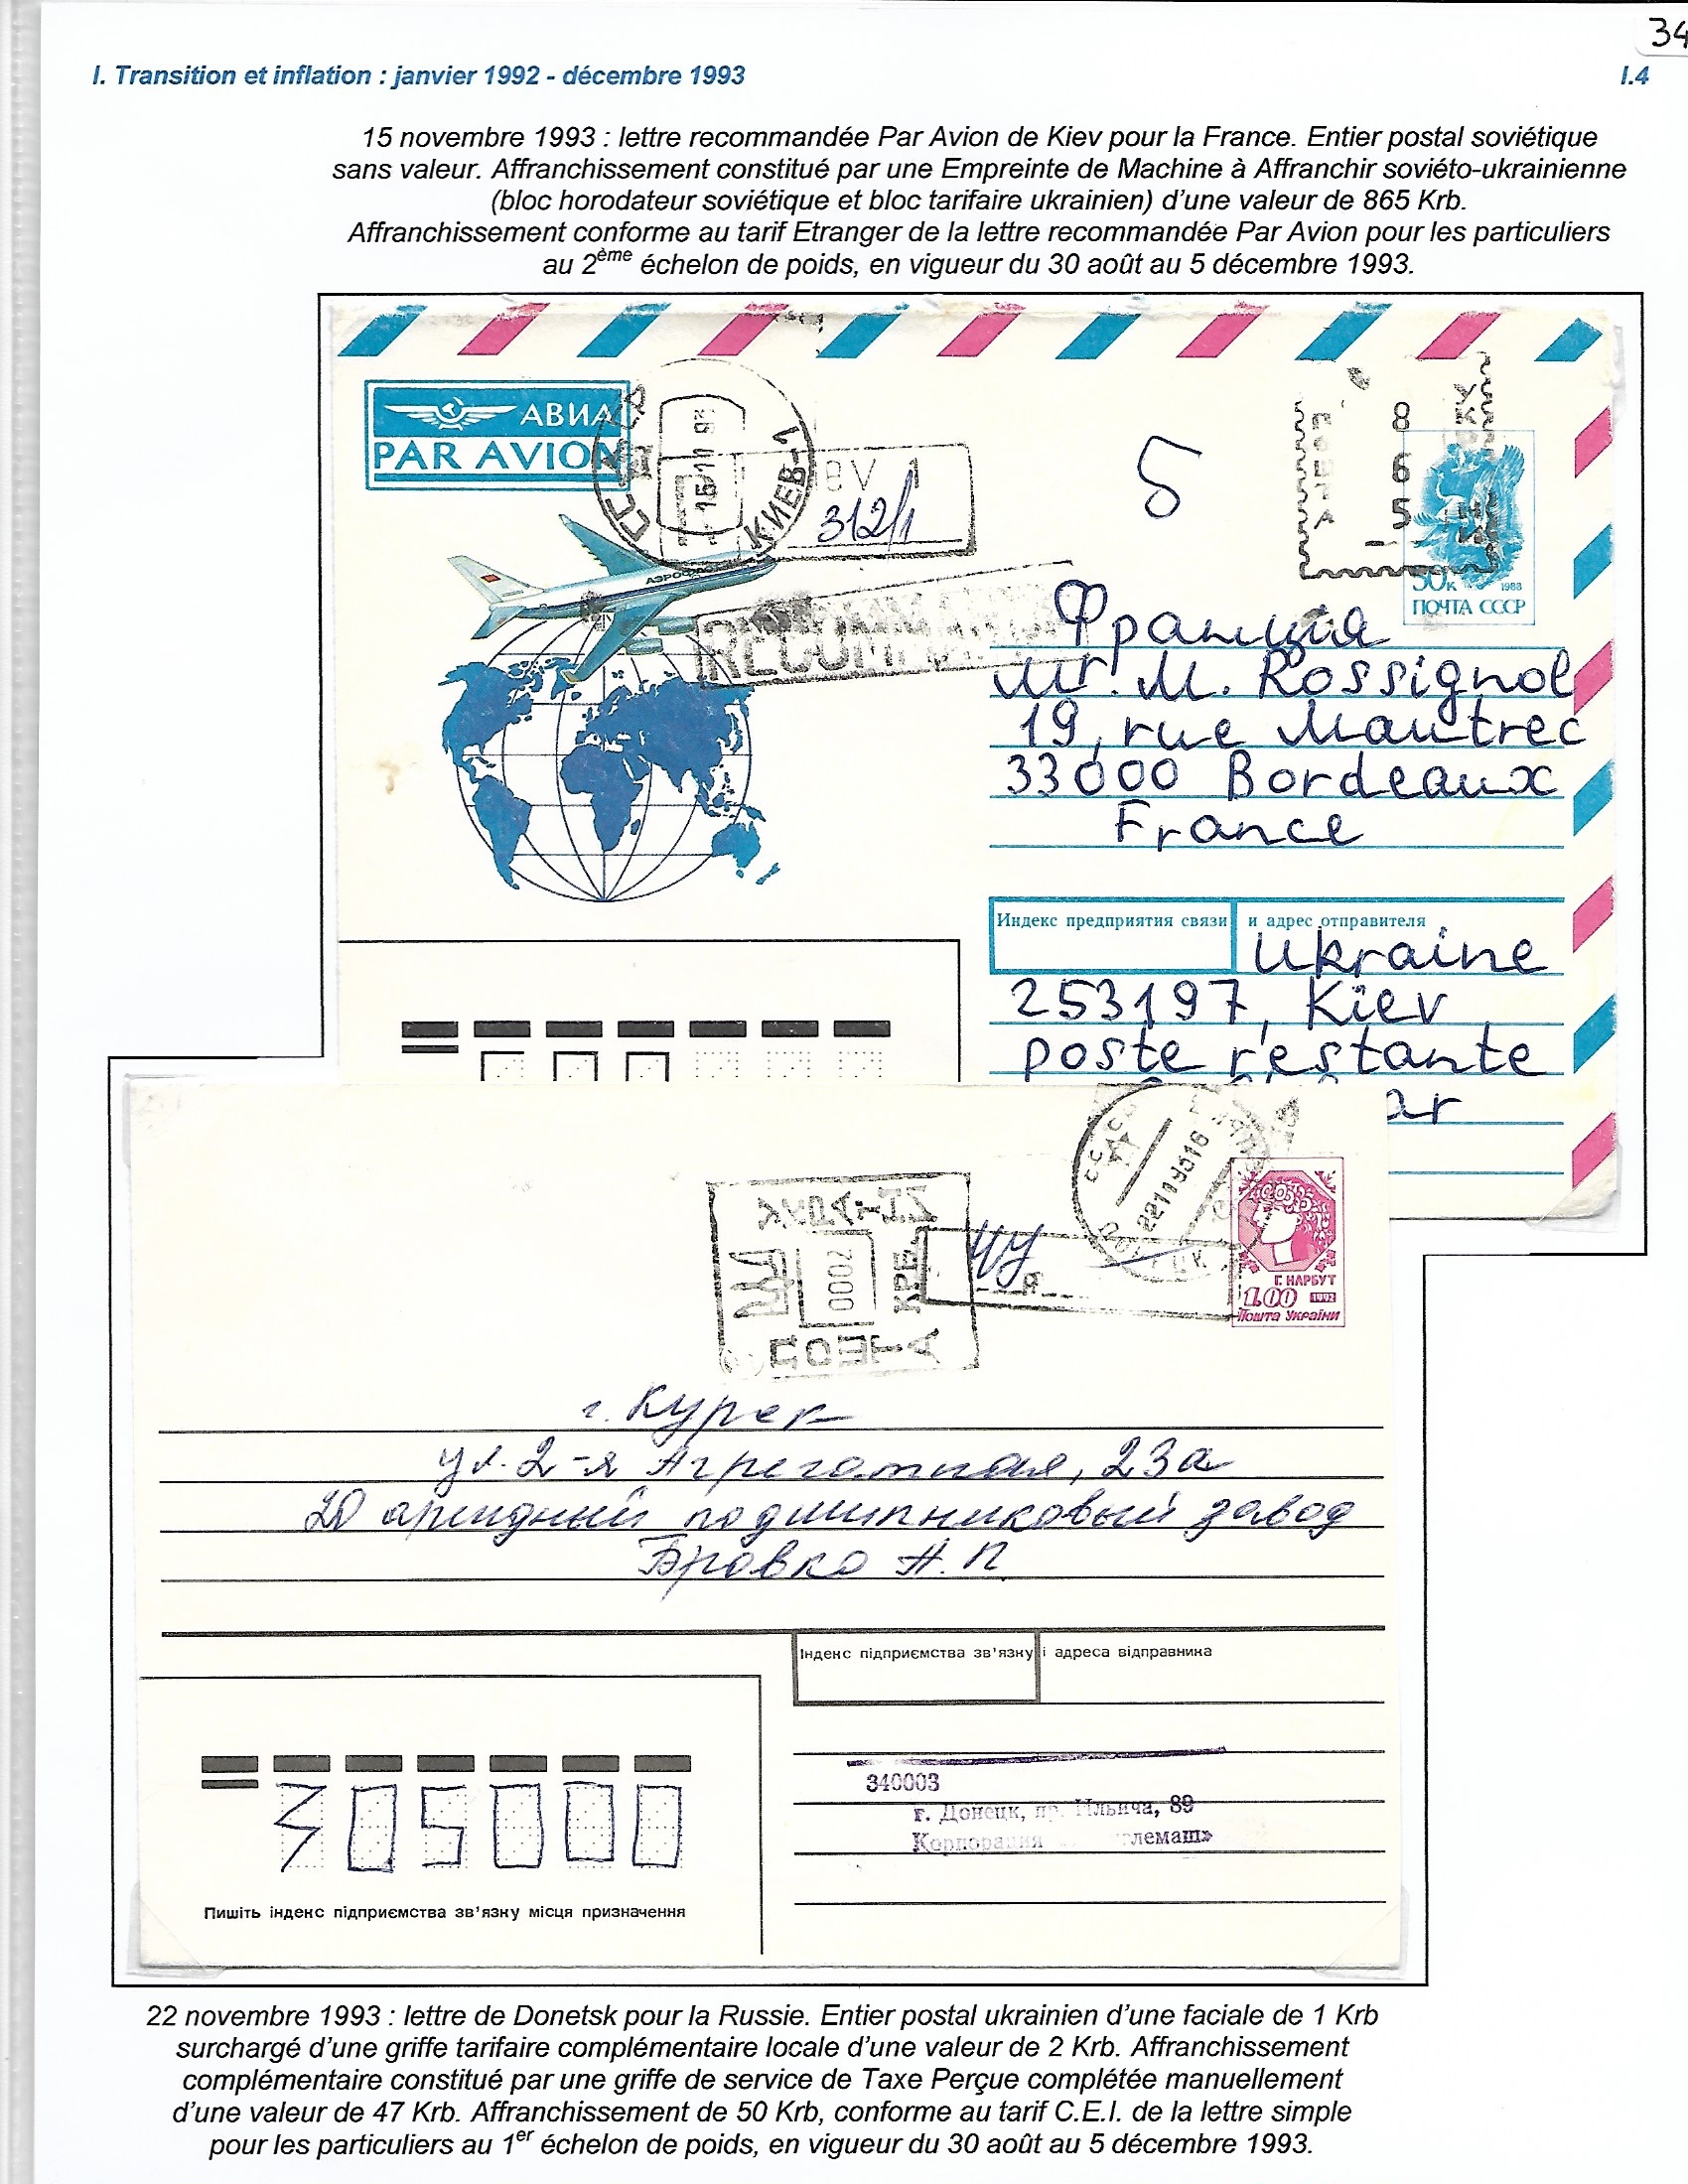 34
I. Transition et inflation : janvier 1992 - décembre 1993
I.4
15 novembre 1993 : lettre recommandée Par Avion de Kiev pour la France. Entier postal soviétique
sans valeur. Affranchissement constitué par une Empreinte de Machine à Affranchir soviéto-ukrainienne
(bloc horodateur soviétique et bloc tarifaire ukrainien) d'une valeur de 865 Krb.
Affranchissement conforme au tarif Etranger de la lettre recommandée Par Avion pour les particuliers
au 2ème échelon de poids, en vigueur du 30 août au 5 décembre 1993.
АВИА
PAR AVION
СССР
15 11 93
КИЕВ-1
BV 1
312/1
5
865
50к 1988
ПОЧТА СССР
АЭРОФЛОТ
RECOMMANDE
Франция
Mr. M. Rossignol
19, rue Mautrec
33000 Bordeaux
France
Индекс предприятия связи и адрес отправителя
Ukraine
253197, Kiev
poste restante
СССР
22 11 93 16
УКРАЇНИ
0002
КРБ
ПОШТА
Г. НАРБУТ
1.00 1992
Пошта України
г. Курск
ул. 2-я Агрегатная, 23а
20 арендный подшипниковый завод
Бровко Н. П.
Індекс підприємства зв'язку і адреса відправника
340003
г. Донецк, пр. Ильича, 89
Корпорация
305000
Пишіть індекс підприємства зв'язку місця призначення
22 novembre 1993 : lettre de Donetsk pour la Russie. Entier postal ukrainien d'une faciale de 1 Krb
surchargé d'une griffe tarifaire complémentaire locale d'une valeur de 2 Krb. Affranchissement
complémentaire constitué par une griffe de service de Taxe Perçue complétée manuellement
d'une valeur de 47 Krb. Affranchissement de 50 Krb, conforme au tarif C.E.I. de la lettre simple
pour les particuliers au 1er échelon de poids, en vigueur du 30 août au 5 décembre 1993.